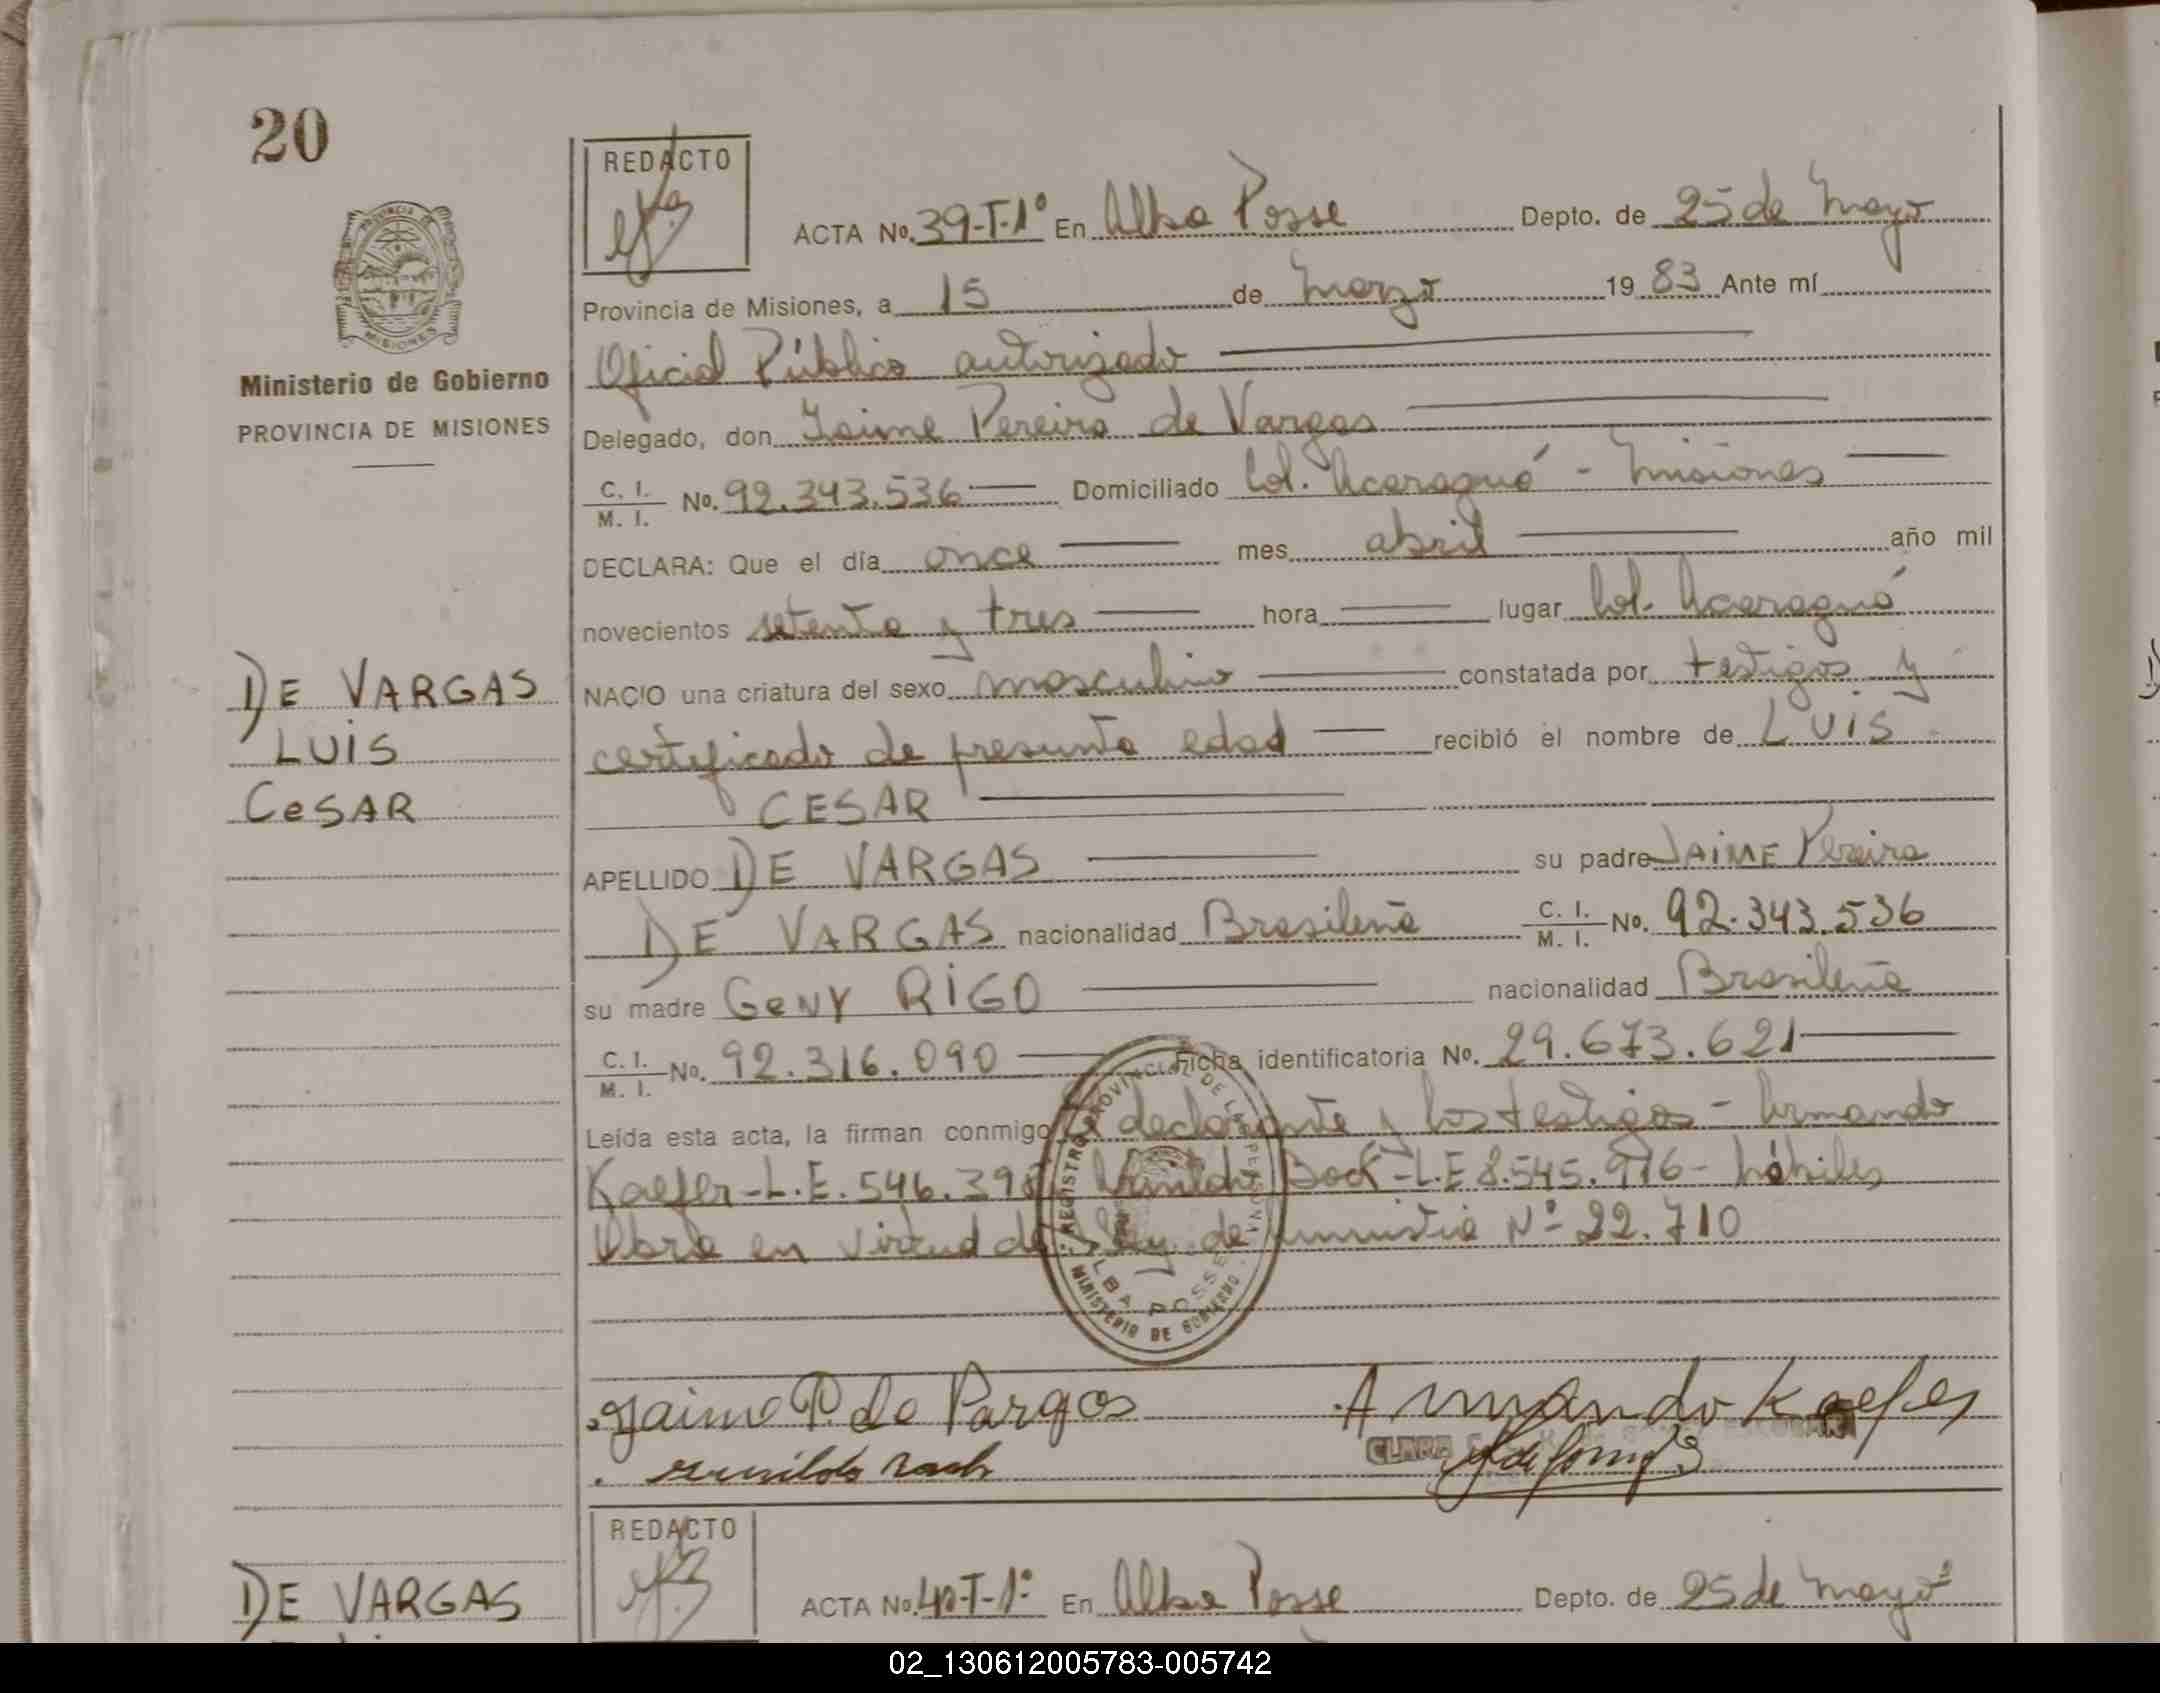 20
REDACTO
ACTA No. 39-T-1º En Alba Posse Depto. de 25 de Mayo
PROVINCIA DE
MISIONES
Provincia de Misiones, a 15 de Marzo 19 83 Ante mí
Ministerio de Gobierno
Oficial Público autorizado
PROVINCIA DE MISIONES
Delegado, don Jaime Pereira de Vargas
C. I.
M. I. No. 92.343.536 Domiciliado Col. Acaraguá - Misiones
DECLARA: Que el día once mes abril año mil
novecientos setenta y tres hora lugar Col. Acaraguá
DE VARGAS
NACIO una criatura del sexo masculino constatada por testigos y
LUIS
certificado de presunta edad recibió el nombre de LUIS
CeSAR
CESAR
APELLIDO DE VARGAS su padre JAIME Pereira
DE VARGAS nacionalidad Brasileña C. I. M. I. No. 92.343.536
su madre GeNY RIGO nacionalidad Brasileña
C. I.
M. I. No. 92.316.090 Ficha identificatoria No. 29.673.621
Leída esta acta, la firman conmigo declarante y los testigos - Armando
Kaefer - L.E. 546.398 Bock - L.E 8.545.976 - hábiles
Labra en virtud de Ley de Amnistía Nº 22.710
REGISTRO PROVINCIAL DE LAS PERSONAS
ALBA POSSE
MINISTERIO DE GOBIERNO
Jaime P. de Vargas Armando Kaefer
CLARA
REDACTO
DE VARGAS
ACTA No. 40-T-1º En Alba Posse Depto. de 25 de Mayo
02_130612005783-005742